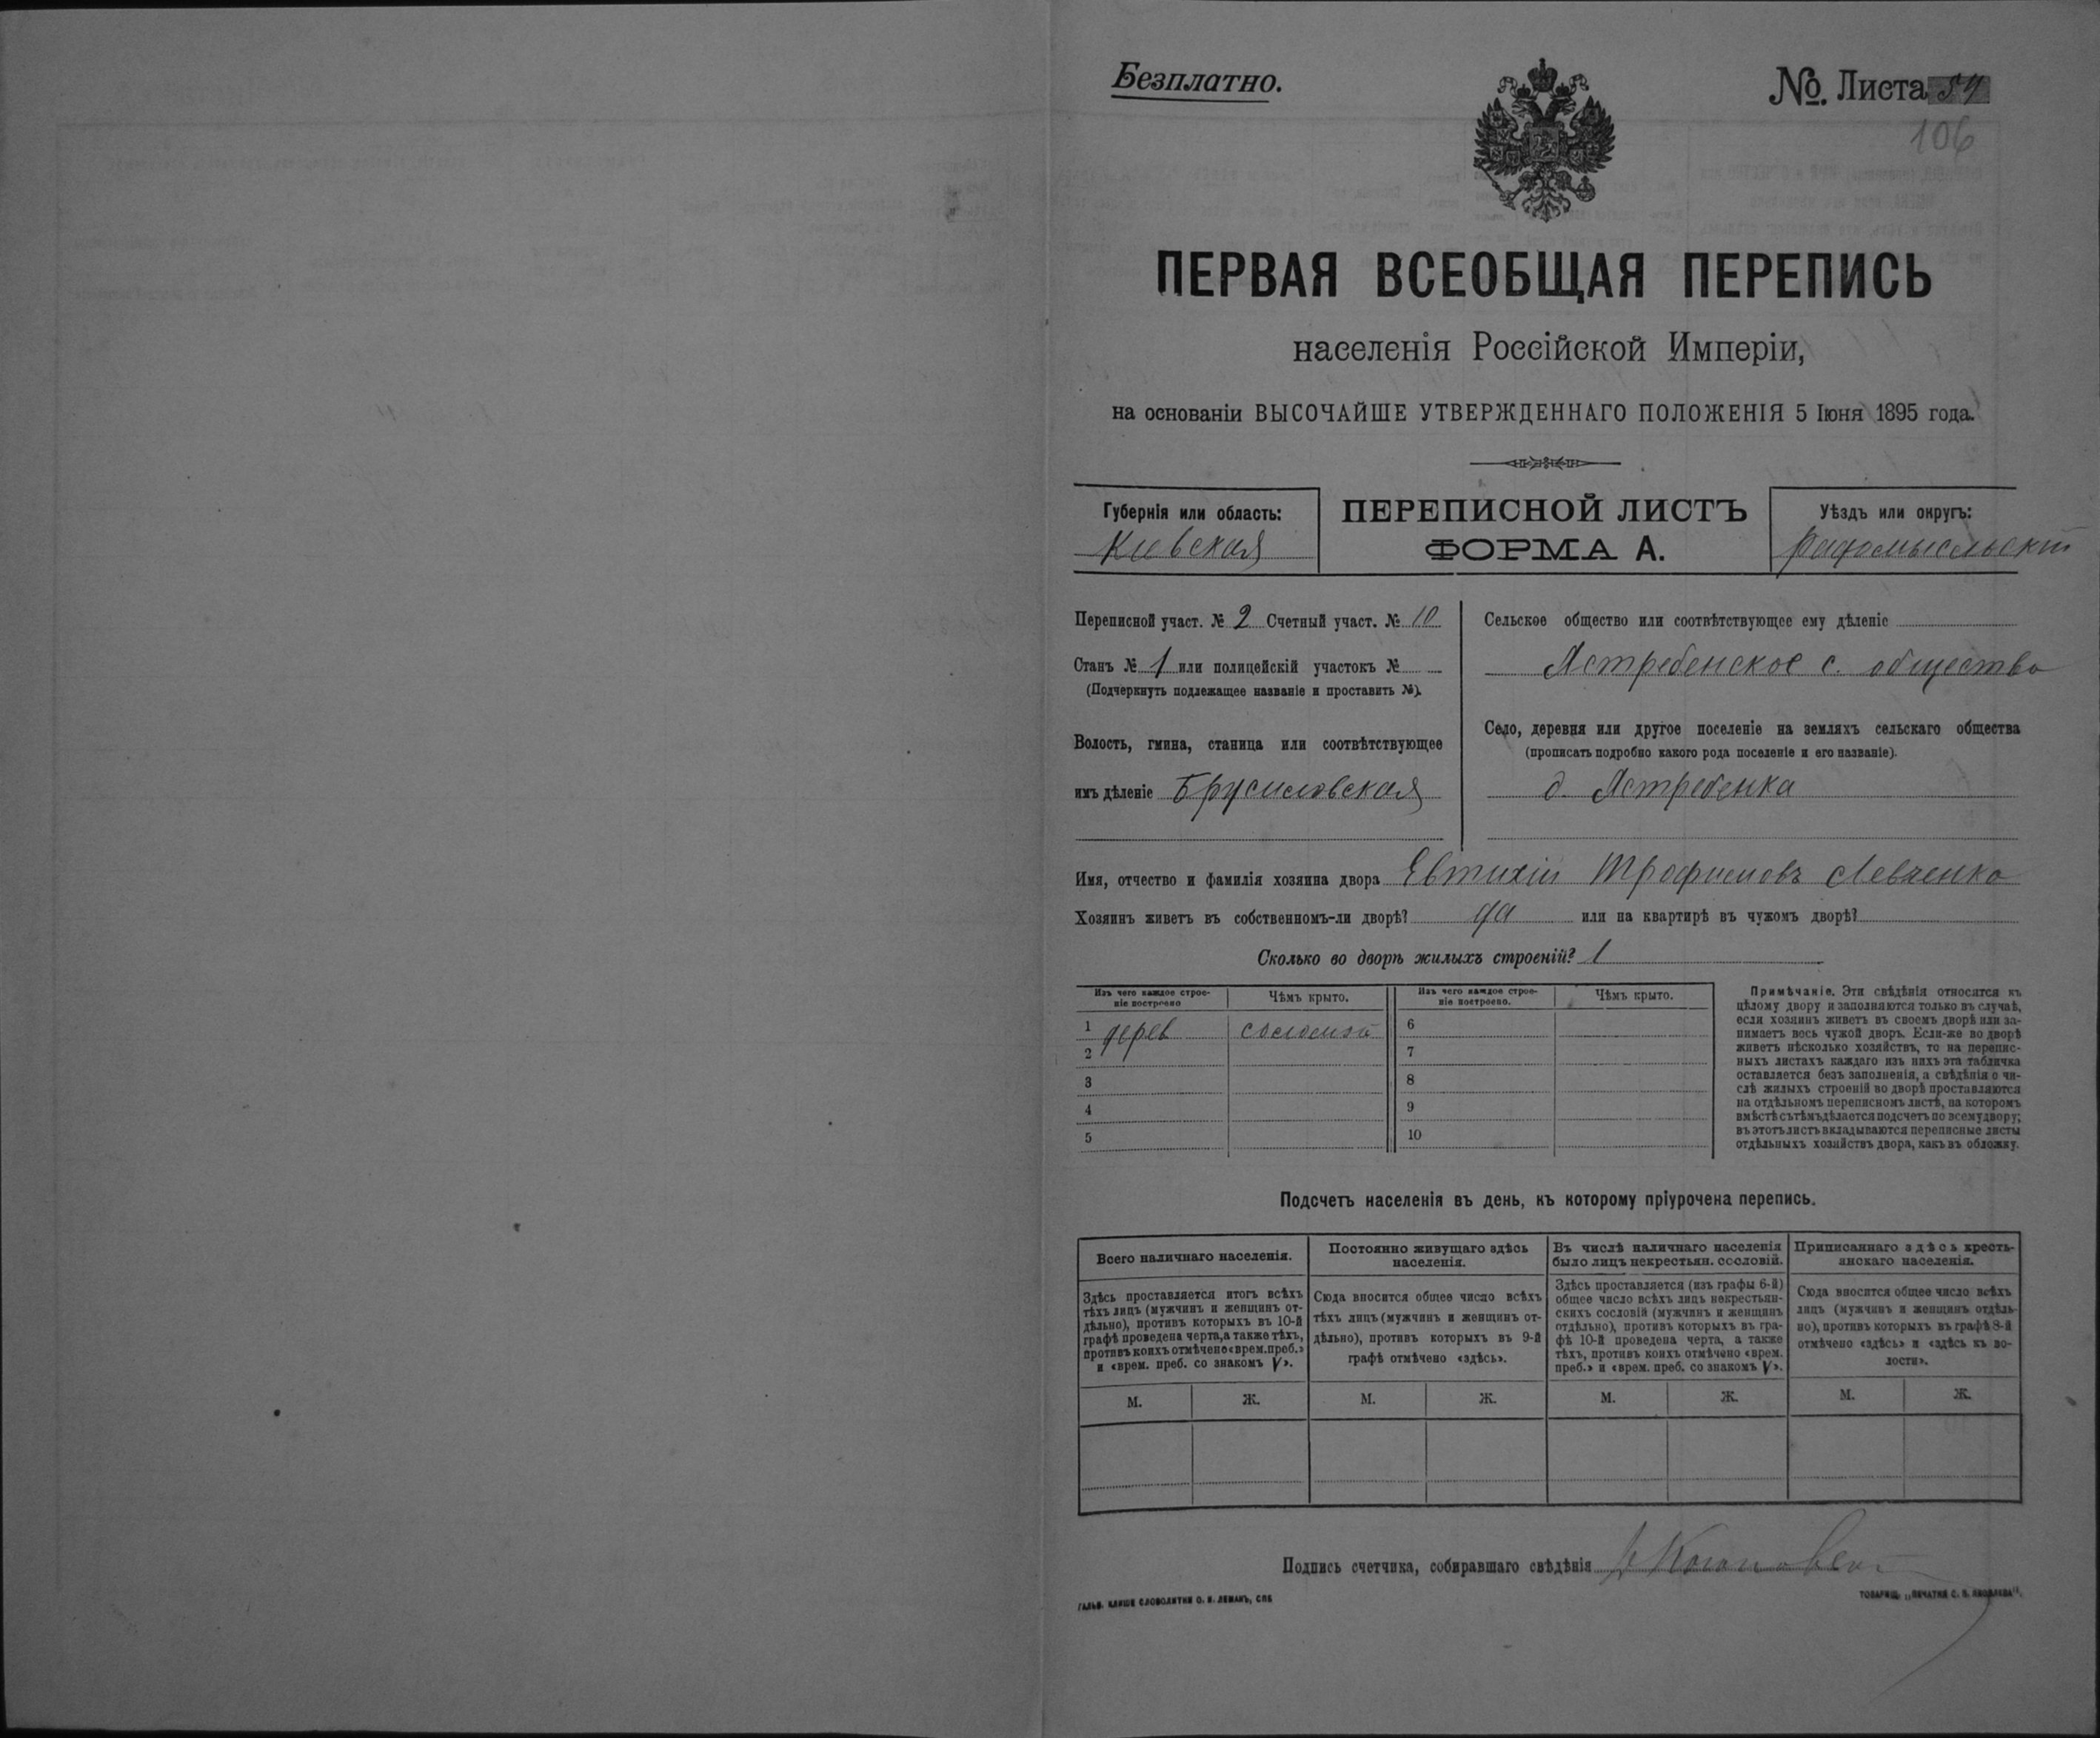 Безплатно.
№. Листа 54
106
ПЕРВАЯ ВСЕОБЩАЯ ПЕРЕПИСЬ
населенія Россійской Имперіи,
на основаніи ВЫСОЧАЙШЕ УТВЕРЖДЕННАГО ПОЛОЖЕНІЯ 5 Іюня 1895 года.
Губернія или область:
Киевская
ПЕРЕПИСНОЙ ЛИСТЪ
ФОРМА А.
Уѣздъ или округъ:
Радомысльскій
Переписной участ. № 2 Счетный участ. № 10
Станъ № 1 или полицейскій участокъ №
(Подчеркнуть подлежащее названіе и проставить №).
Волость, гмина, станица или соотвѣтствующее
имъ дѣленіе Брусиловская
Сельское общество или соотвѣтствующее ему дѣленіе
Ястребенское с. общество
Село, деревня или другое поселеніе на земляхъ сельскаго общества
(прописать подробно какого рода поселеніе и его названіе).
д. Ястребенка
Имя, отчество и фамилія хозяина двора Евтихій Трофимовъ Левченко
Хозяинъ живетъ въ собственномъ-ли дворѣ? да или на квартирѣ въ чужомъ дворѣ?
Сколько во дворѣ жилыхъ строеній? 1
Изъ чего каждое строе-
ніе построено
Чѣмъ крыто.
Изъ чего каждое строе-
ніе построено.
Чѣмъ крыто.
1 дерев соломой
2
3
4
5
6
7
8
9
10
Примѣчаніе. Эти свѣдѣнія относятся къ
цѣлому двору и заполняются только въ случаѣ,
если хозяинъ живетъ въ своемъ дворѣ или за-
нимаетъ весь чужой дворъ. Если-же во дворѣ
живетъ нѣсколько хозяйствъ, то на перепис-
ныхъ листахъ каждаго изъ нихъ эта табличка
оставляется безъ заполненія, а свѣдѣнія о чи-
слѣ жилыхъ строеній во дворѣ проставляются
на отдѣльномъ переписномъ листѣ, на которомъ
вмѣстѣ съ тѣмъ дѣлается подсчетъ по всему двору;
въ этотъ листъ вкладываются переписные листы
отдѣльныхъ хозяйствъ двора, какъ въ обложку.
Подсчетъ населенія въ день, къ которому пріурочена перепись.
Всего наличнаго населенія.
Здѣсь проставляется итогъ всѣхъ
тѣхъ лицъ (мужчинъ и женщинъ от-
дѣльно), противъ которыхъ въ 10-й
графѣ проведена черта, а также тѣхъ,
противъ коихъ отмѣчено «врем. преб.»
и «врем. преб. со знакомъ V».
М. Ж.
Постоянно живущаго здѣсь
населенія.
Сюда вносится общее число всѣхъ
тѣхъ лицъ (мужчинъ и женщинъ от-
дѣльно), противъ которыхъ въ 9-й
графѣ отмѣчено «здѣсь».
М. Ж.
Въ числѣ наличнаго населенія
было лицъ некрестьян. сословій.
Здѣсь проставляется (изъ графы 6-й)
общее число всѣхъ лицъ некрестьян-
скихъ сословій (мужчинъ и женщинъ
отдѣльно), противъ которыхъ въ гра-
фѣ 10-й проведена черта, а также
тѣхъ, противъ коихъ отмѣчено «врем.
преб.» и «врем. преб. со знакомъ V».
М. Ж.
Приписаннаго здѣсь кресть-
янскаго населенія.
Сюда вносится общее число всѣхъ
лицъ (мужчинъ и женщинъ отдѣль-
но), противъ которыхъ въ графѣ 8-й
отмѣчено «здѣсь» и «здѣсь къ во-
лости».
М. Ж.
Подпись счетчика, собиравшаго свѣдѣнія
ГАЛЬВ. КЛИШЕ СЛОВОЛИТНИ О. И. ЛЕМАНЪ, СПБ
ТОВАРИЩ. „ПЕЧАТНЯ С. П. ЯКОВЛЕВА".